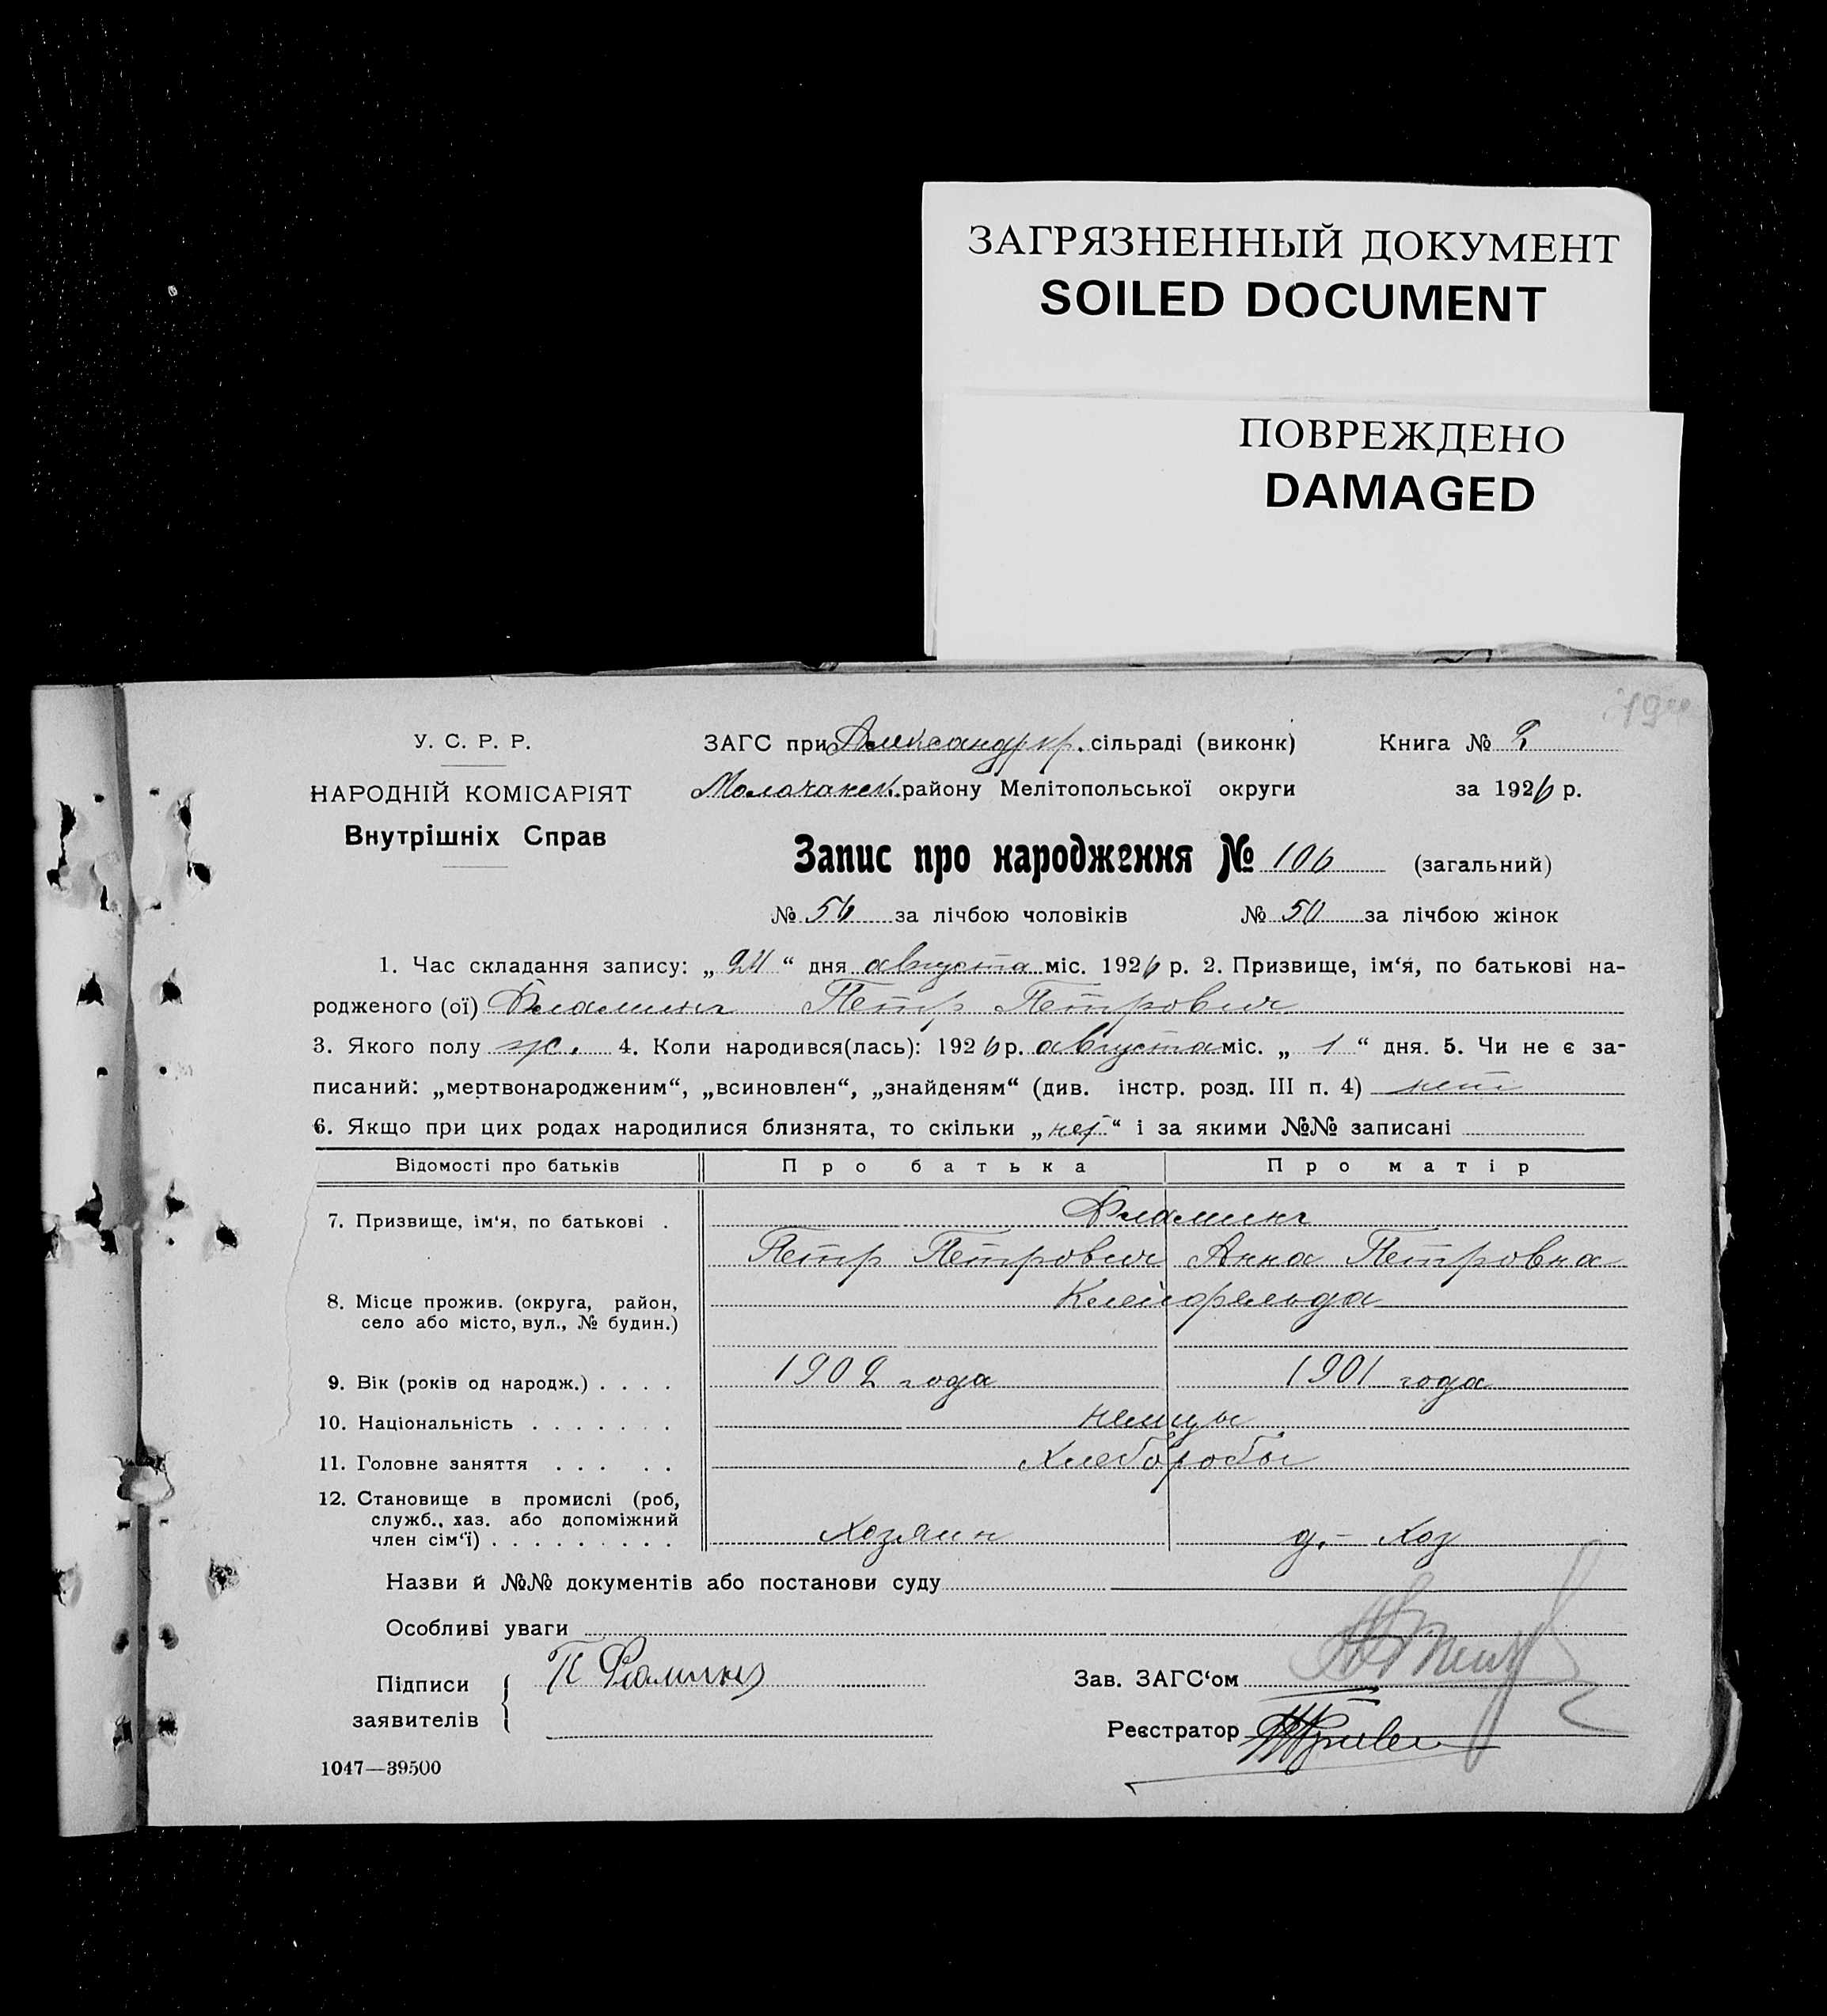 ЗАГРЯЗНЕННЫЙ ДОКУМЕНТ
SOILED DOCUMENT
ПОВРЕЖДЕНО
DAMAGED
У. С. Р. Р.
НАРОДНІЙ КОМІСАРІЯТ
Внутрішніх Справ
ЗАГС при Александркр. сільраді (виконк) Книга № 2
Молочанск. району Мелітопольської округи за 1926 р.
Запис про народження № 106 (загальний)
№ 56 за лічбою чоловіків № 50 за лічбою жінок
1. Час складання запису: „24“ дня августа міс. 1926 р. 2. Призвище, ім‘я, по батькові на-
родженого (ої) Фламинг Петр Петрович
3. Якого полу 4. Коли народився(лась): 1926 р. августа міс. „1“ дня. 5. Чи не є за-
писаний: „мертвонародженим“, „всиновлен“, „знайденям“ (див. інстр. розд. III п. 4) нет
6. Якщо при цих родах народилися близнята, то скільки „нет“ і за якими №№ записані
Відомості про батьків Про батька Про матір
7. Призвище, ім‘я, по батькові . Фламинг
Петр Петрович Анна Петровна
8. Місце прожив. (округа, район, село або місто, вул., № будин.) Клейнфельда
9. Вік (років од народж.) . . . . 1902 года 1901 года
10. Національність . . . . . . . немцы
11. Головне заняття . . . . . Хлеборобы
12. Становище в промислі (роб, служб., хаз. або допоміжний член сім‘ї) . . . . . . . . . Хозяин д. - хоз
Назви й №№ документів або постанови суду
Особливі уваги
Підписи заявителів П Фламинг
Зав. ЗАГС‘ом
Реєстратор
1047—39500